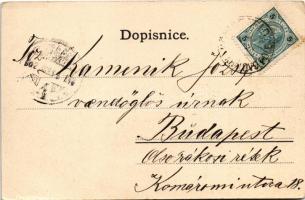 Dopisnice.
Kamenik József
vendéglős úrnak
Budapest
Alsórákosi rétek
Komáromi utca 18.